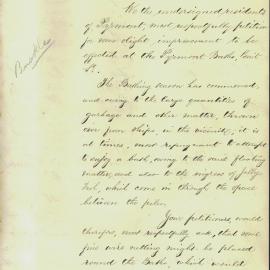 We the undersigned residents
of Pyrmont, most respectfully petition
for some slight improvement to be
effected at the Pyrmont Baths,
St.
The Bathing season has commenced,
and owing to the large quantities of
garbage and other matter, thrown
over from ships, in the vicinity, it is
at times, most repugnant to attempt
to enjoy a bath, owing to the said floating
matter, and also to the ingress of jelly
fish, which come in through the space
between the piles.
Your petitioners, would
therefore, most respectfully ask, that some
fine wire netting might be placed
round the Baths, which would